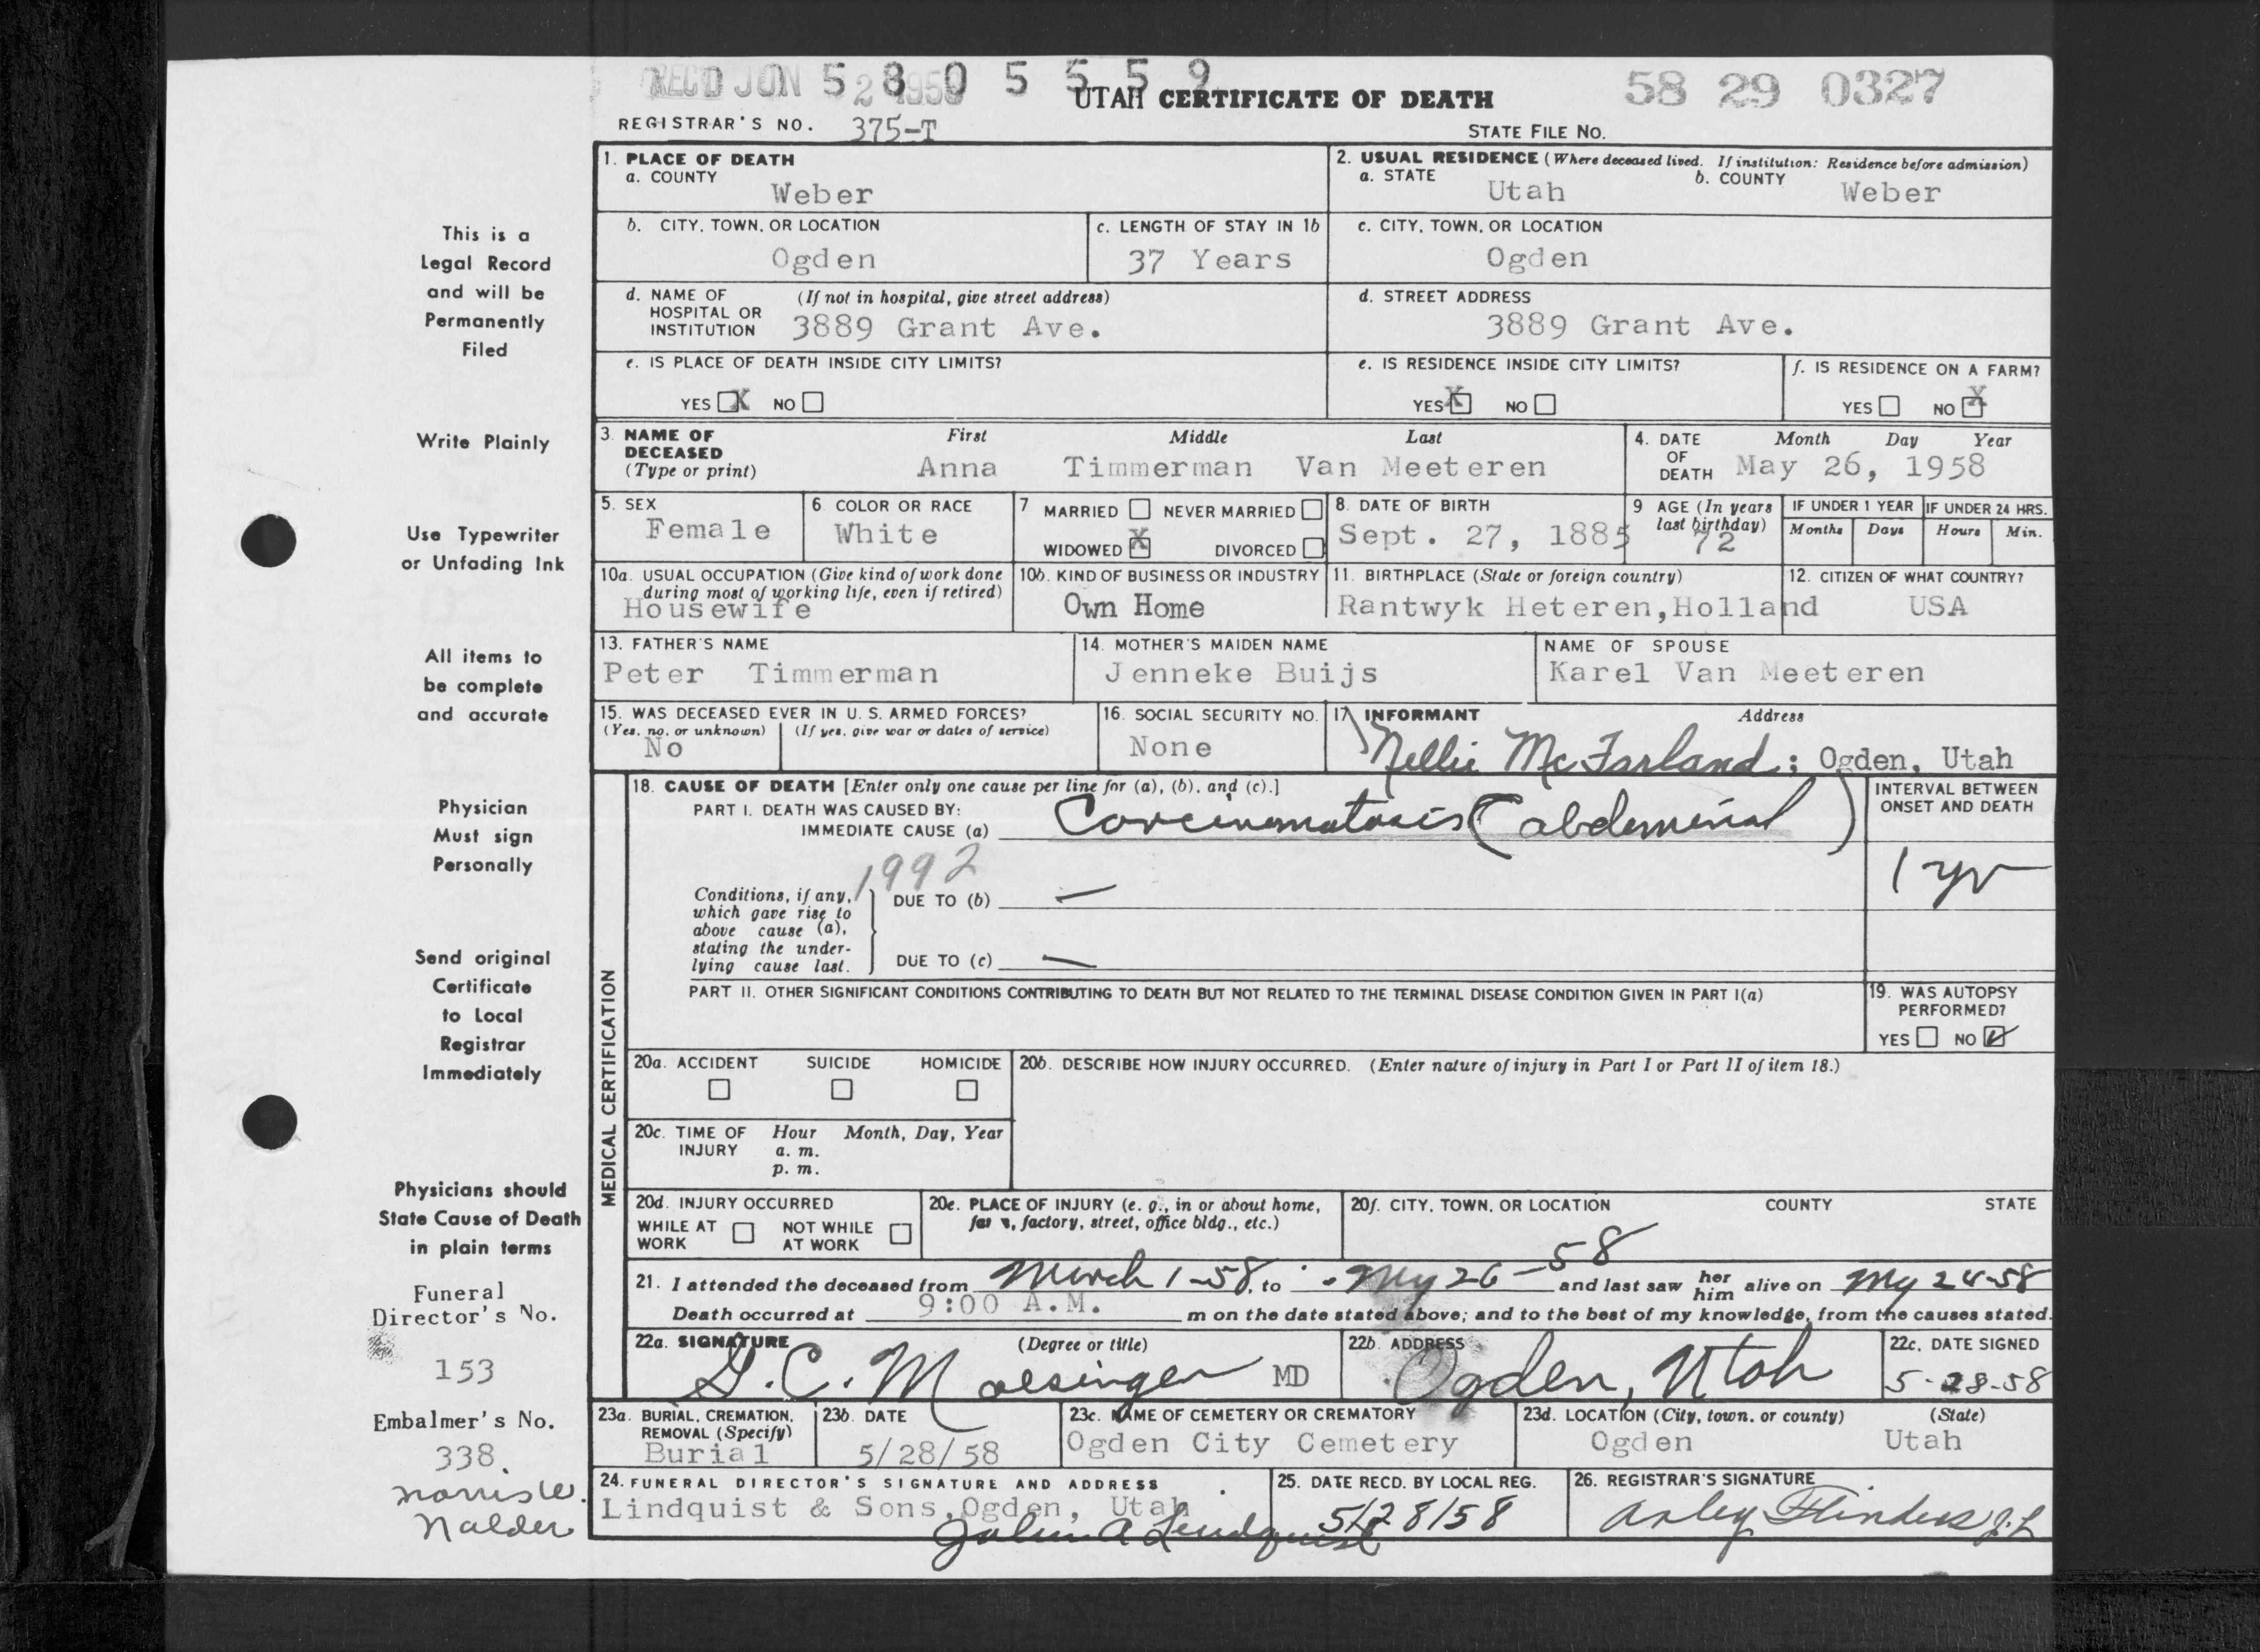 REC'D JUN 2 1958
5 8 0 5 5 5 9
58 29 0327
UTAH CERTIFICATE OF DEATH
REGISTRAR'S NO. 375-T
STATE FILE NO.
This is a
Legal Record
and will be
Permanently
Filed
Write Plainly
Use Typewriter
or Unfading Ink
All items to
be complete
and accurate
Physician
Must sign
Personally
Send original
Certificate
to Local
Registrar
Immediately
Physicians should
State Cause of Death
in plain terms
Funeral
Director's No.
153
Embalmer's No.
338
Norris W.
Nalder
1. PLACE OF DEATH
a. COUNTY
Weber
2. USUAL RESIDENCE (Where deceased lived. If institution: Residence before admission)
a. STATE Utah b. COUNTY Weber
b. CITY, TOWN, OR LOCATION
Ogden
c. LENGTH OF STAY IN 1b
37 Years
c. CITY, TOWN, OR LOCATION
Ogden
d. NAME OF HOSPITAL OR INSTITUTION (If not in hospital, give street address)
3889 Grant Ave.
d. STREET ADDRESS
3889 Grant Ave.
e. IS PLACE OF DEATH INSIDE CITY LIMITS?
YES X NO
e. IS RESIDENCE INSIDE CITY LIMITS?
YES X NO
f. IS RESIDENCE ON A FARM?
YES NO X
3. NAME OF DECEASED (Type or print)
First Middle Last
Anna Timmerman Van Meeteren
4. DATE OF DEATH
Month Day Year
May 26, 1958
5. SEX
Female
6. COLOR OR RACE
White
7 MARRIED NEVER MARRIED
WIDOWED X DIVORCED
8. DATE OF BIRTH
Sept. 27, 1885
9 AGE (In years last birthday)
72
IF UNDER 1 YEAR
Months Days
IF UNDER 24 HRS.
Hours Min.
10a. USUAL OCCUPATION (Give kind of work done during most of working life, even if retired)
Housewife
10b. KIND OF BUSINESS OR INDUSTRY
Own Home
11. BIRTHPLACE (State or foreign country)
Rantwyk Heteren,Holland
12. CITIZEN OF WHAT COUNTRY?
USA
13. FATHER'S NAME
Peter Timmerman
14. MOTHER'S MAIDEN NAME
Jenneke Buijs
NAME OF SPOUSE
Karel Van Meeteren
15. WAS DECEASED EVER IN U. S. ARMED FORCES?
(Yes, no, or unknown) (If yes, give war or dates of service)
No
16. SOCIAL SECURITY NO.
None
17 INFORMANT Address
Nellie McFarland; Ogden, Utah
MEDICAL CERTIFICATION
18. CAUSE OF DEATH [Enter only one cause per line for (a), (b), and (c).]
PART I. DEATH WAS CAUSED BY:
IMMEDIATE CAUSE (a) Carcinomatosis (abdominal)
INTERVAL BETWEEN ONSET AND DEATH
1 yr
1992
Conditions, if any, which gave rise to above cause (a), stating the underlying cause last.
DUE TO (b) —
DUE TO (c) —
PART II. OTHER SIGNIFICANT CONDITIONS CONTRIBUTING TO DEATH BUT NOT RELATED TO THE TERMINAL DISEASE CONDITION GIVEN IN PART I(a)
19. WAS AUTOPSY PERFORMED?
YES NO ✓
20a. ACCIDENT SUICIDE HOMICIDE
20b. DESCRIBE HOW INJURY OCCURRED. (Enter nature of injury in Part I or Part II of item 18.)
20c. TIME OF INJURY Hour Month, Day, Year
a. m.
p. m.
20d. INJURY OCCURRED
WHILE AT WORK NOT WHILE AT WORK
20e. PLACE OF INJURY (e. g., in or about home, farm, factory, street, office bldg., etc.)
20f. CITY, TOWN, OR LOCATION COUNTY STATE
21. I attended the deceased from March 1-58, to My 26-58 and last saw her him alive on My 24-58
Death occurred at 9:00 A.M. m on the date stated above; and to the best of my knowledge, from the causes stated.
22a. SIGNATURE (Degree or title)
G.C. Moesinger MD
22b. ADDRESS
Ogden, Utah
22c. DATE SIGNED
5-28-58
23a. BURIAL, CREMATION, REMOVAL (Specify)
Burial
23b. DATE
5/28/58
23c. NAME OF CEMETERY OR CREMATORY
Ogden City Cemetery
23d. LOCATION (City, town, or county) (State)
Ogden Utah
24. FUNERAL DIRECTOR'S SIGNATURE AND ADDRESS
Lindquist & Sons,Ogden, Utah
John A Lindquist
25. DATE RECD. BY LOCAL REG.
5/28/58
26. REGISTRAR'S SIGNATURE
Arley Flinders J.L